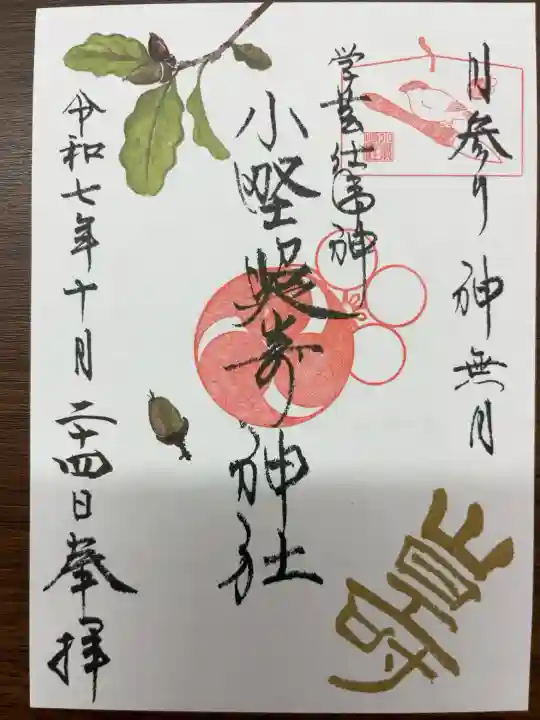 月参り 神無月
学芸仕事神
小野照崎神社
令和七年十月二十四日奉拝
寿